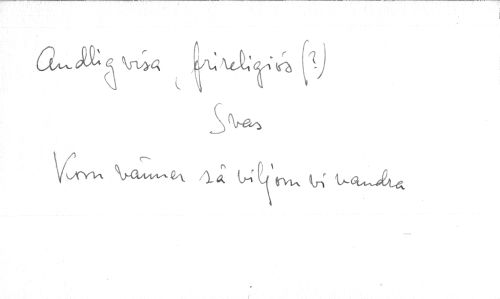 Andlig visa, frireligiös (?)
Svas
Kom vänner så viljom vi vandra